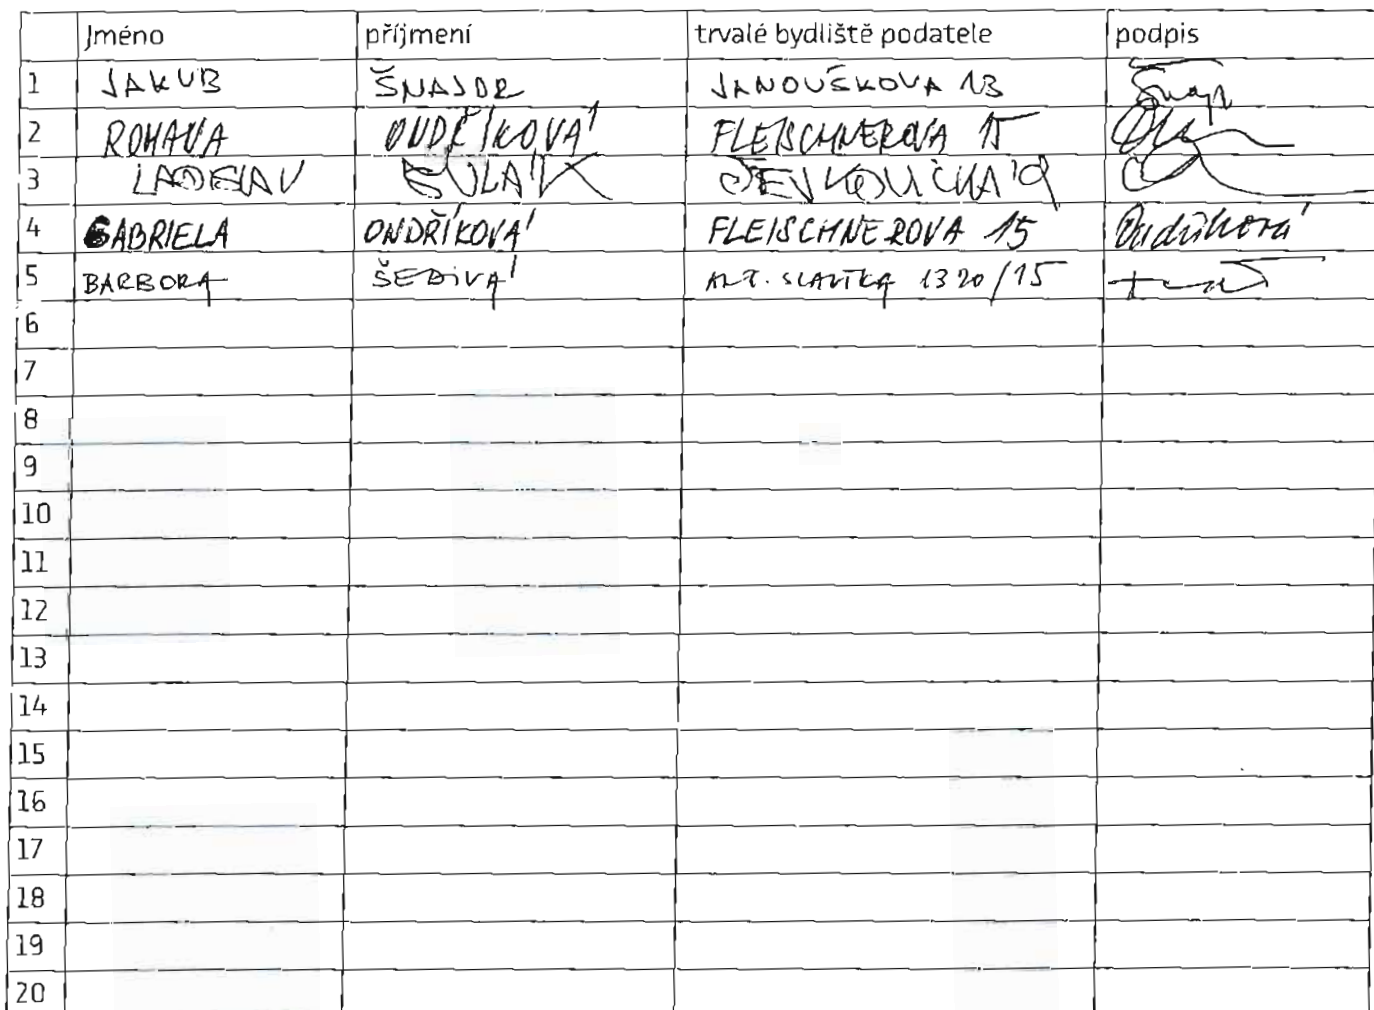 Jméno příjmení trvalé bydliště podatele podpis
1 JAKUB ŠNAJDR JANOUŠKOVA 13
2 ROMANA ONDŘÍKOVÁ FLEISCHNEROVA 15
3 LADISLAV
4 GABRIELA ONDŘÍKOVÁ FLEISCHNEROVA 15 Ondříková
5 BARBORA ŠEDIVÁ ANT. SLAVÍKA 1320/15
6
7
8
9
10
11
12
13
14
15
16
17
18
19
20